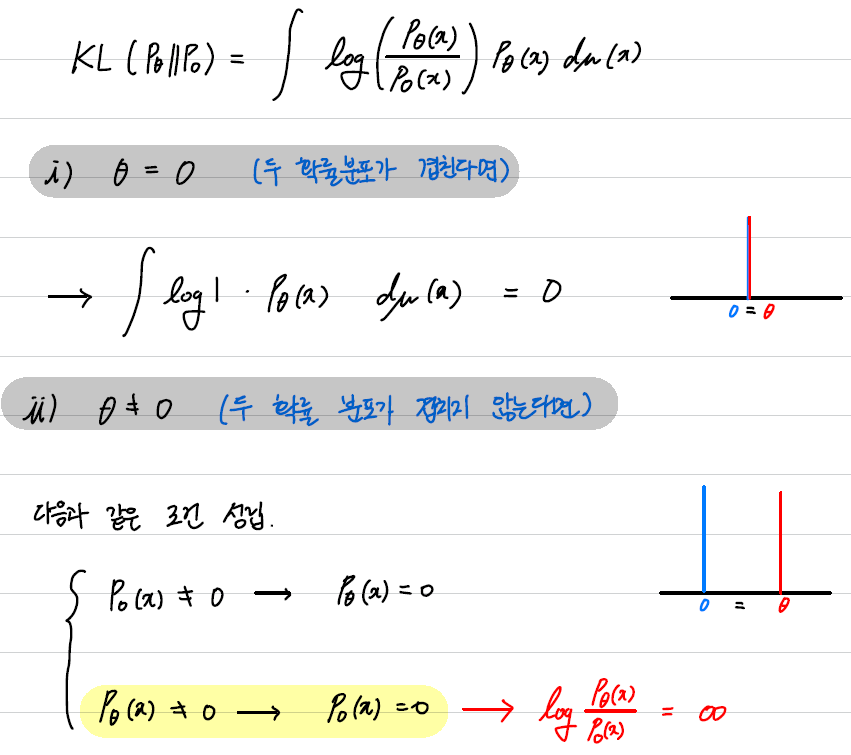 KL (P_θ || P_0) = ∫ log( P_θ(x) / P_0(x) ) P_θ(x) dμ(x)
i) θ = 0 (두 확률분포가 겹친다면)
→ ∫ log 1 · P_θ(x) dμ(x) = 0
0 = θ
ii) θ ≠ 0 (두 확률 분포가 겹치지 않는다면)
다음과 같은 조건 성립.
P_0(x) ≠ 0 → P_θ(x) = 0
0 = θ
P_θ(x) ≠ 0 → P_0(x) = 0 → log P_θ(x) / P_0(x) = ∞